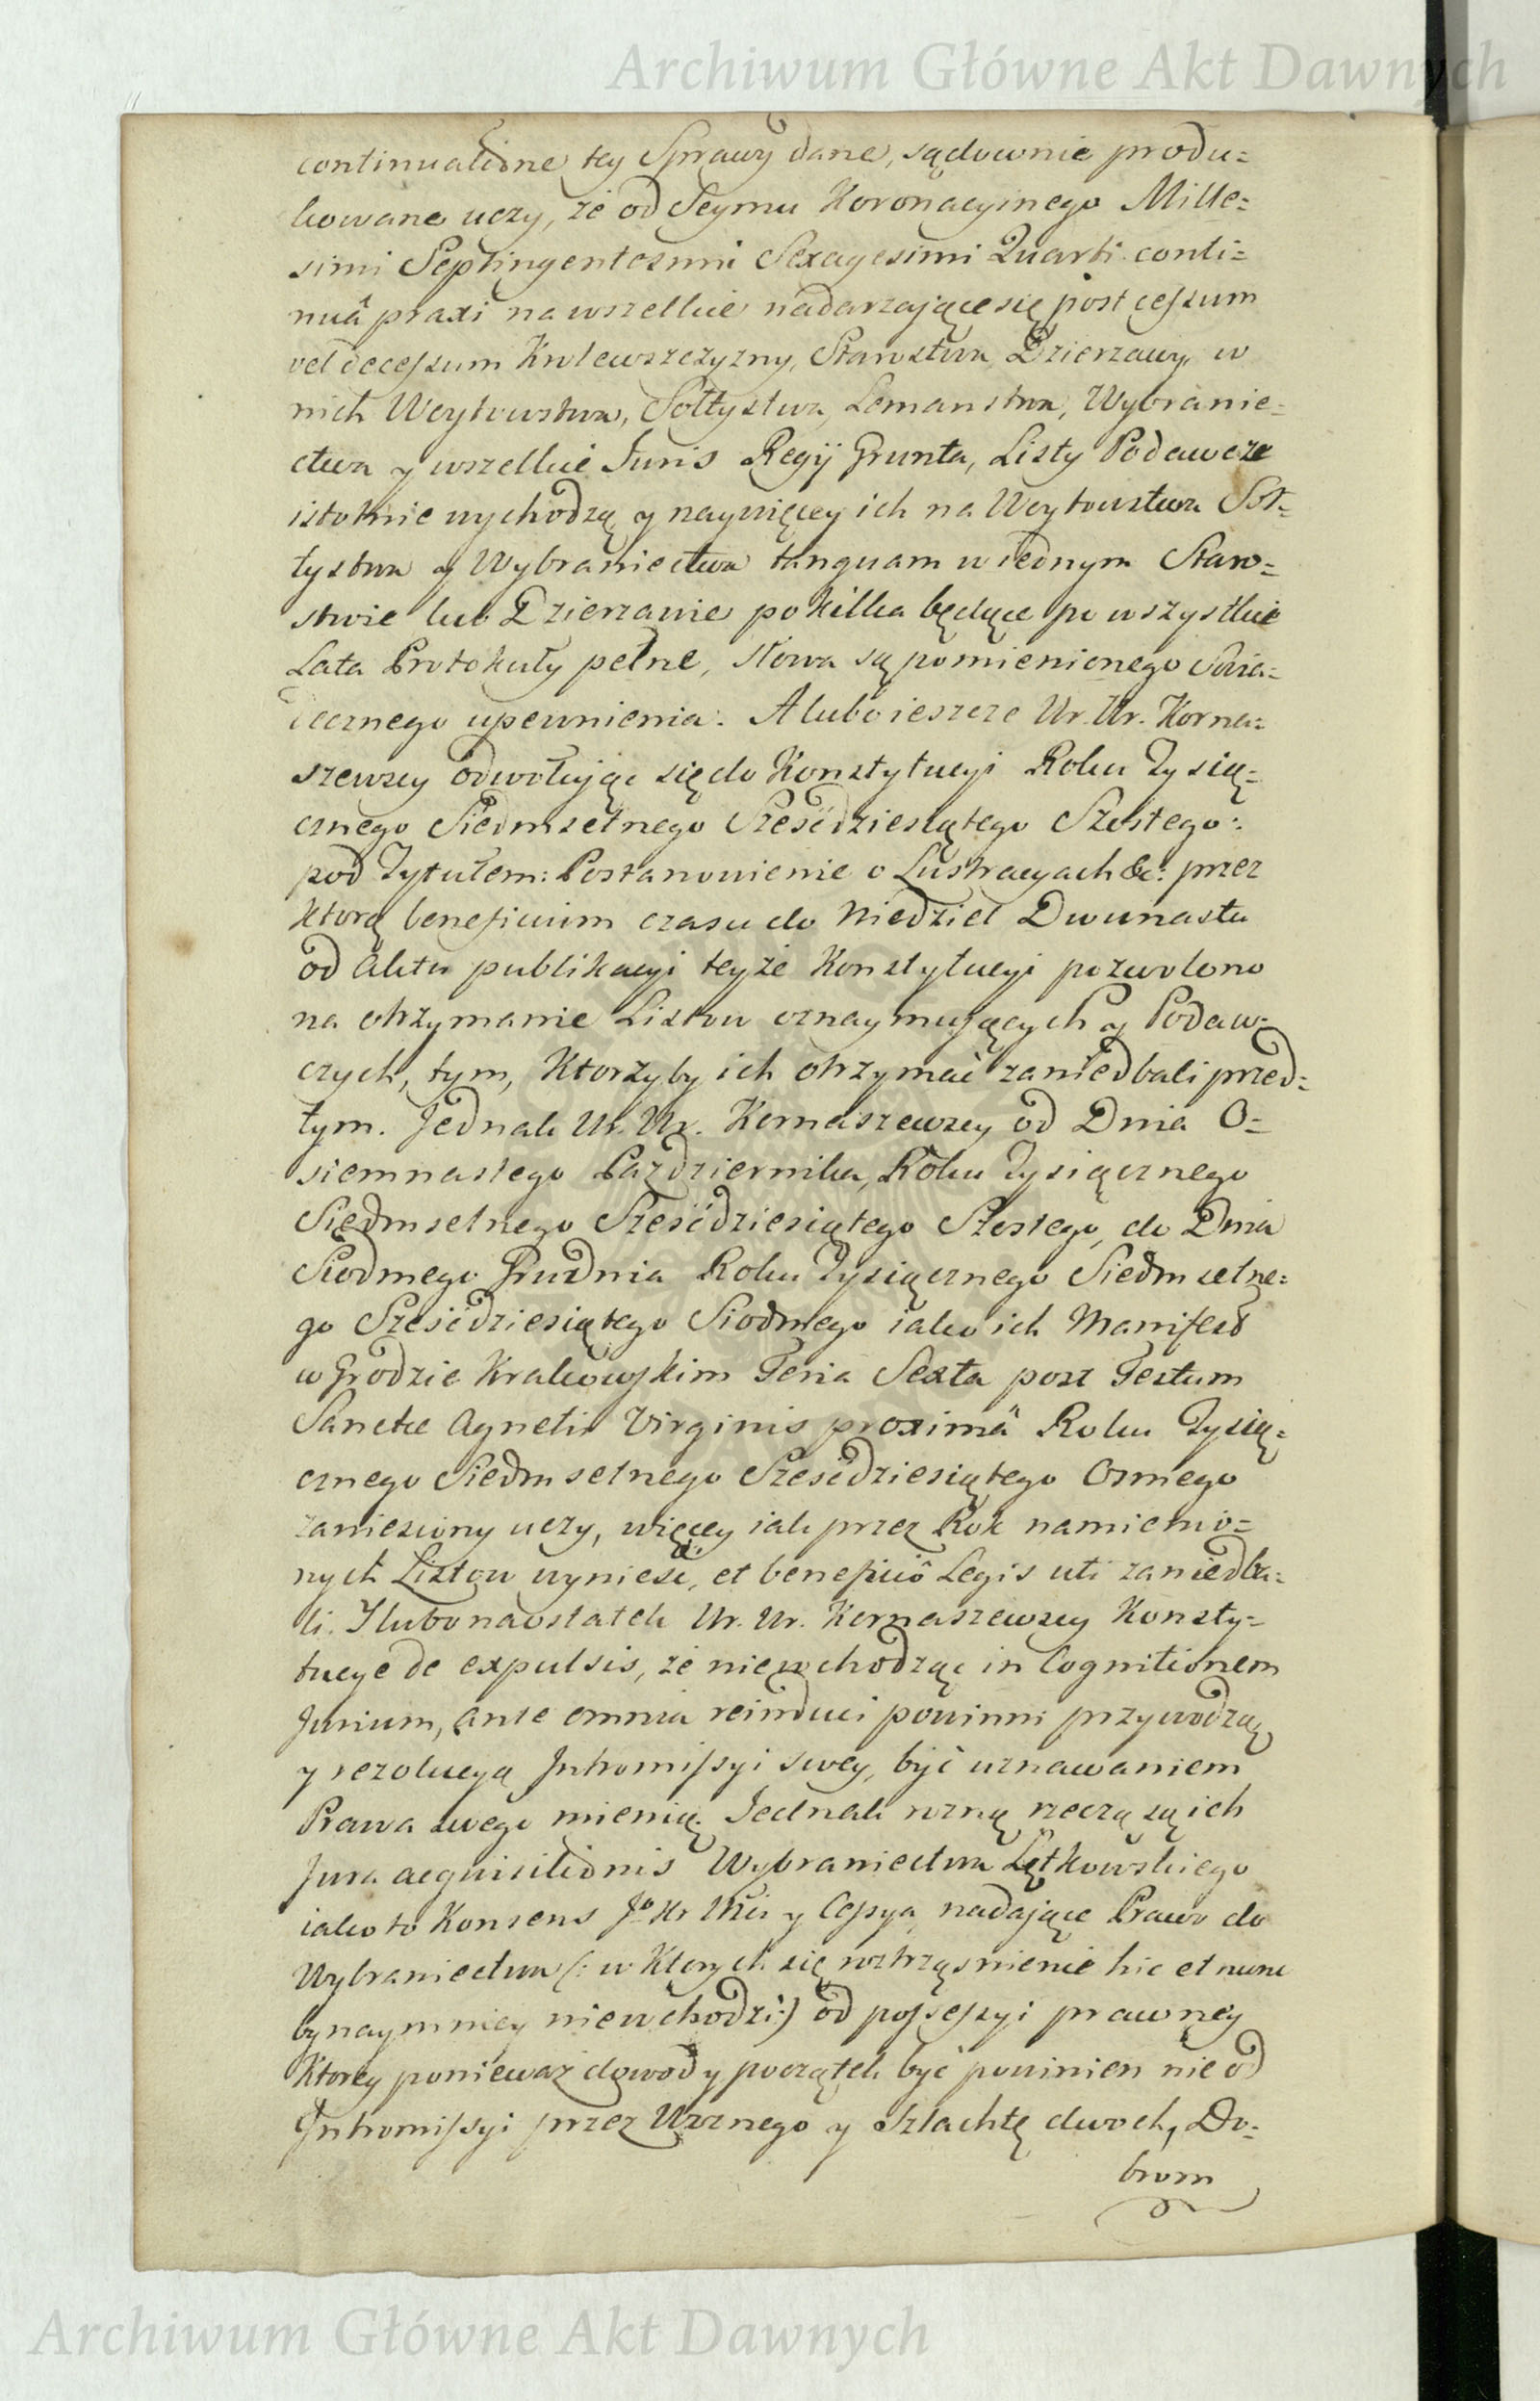 Archiwum Główne Akt Dawnych
continuatione tey Sprawy dane, sądownie produ=
kowane uczy, że od Seymu Koronacyinego Mille=
simi Septingentesimi Sexagesimi Quarti conti=
nuâ praxi na wszelkie nadarzające się post cessum
vel decessum Krolewszczyzny, Starostwa Dzierzawy w
nich Woytowstwa, Sołtystwa, Lemanstwa, Wybranie=
ctwa y wszelkie Juris Regij Grunta, Listy Podawcze
istotnie wychodzą y naywięcey ich na Woytowstwa Soł=
tystwa y Wybraniectwa tanquam w iednym Staro=
stwie lub Dzierzawie po kilka będące po wszystkie
Lata Protokuły pełne, słowa są pomienionego Świa=
decznego upewnienia. A lubo ieszcze Ur. Ur. Korna=
szewscy odwołuiąc się do Konstytucyi Roku Tysią=
cznego Siedmsetnego Sześćdziesiątego Szostego:
pod Tytułem: Postanowienie o Lustracyach &c: przez
ktorą beneficium czasu do Niedziel Dwunastu
od Aktu publikacyi teyże Konstytucyi pozwolono
na otrzymanie Listow oznaymuiących y Podaw=
czych, tym, Ktorzyby ich otrzymać zaniedbali przed=
tym. Jednak Ur. Ur. Kornaszewscy od Dnia O=
siemnastego Pazdziernika, Roku Tysiącznego
Siedmsetnego Sześćdziesiątego Szostego, do Dnia
Siodmego Grudnia Roku Tysiącznego Siedmsetne=
go Sześćdziesiątego Siodmego iako ich Manifest
w Grodzie Krakowskim Feria Sexta post Festum
Sanctæ Agnetis Virginis proximâ Roku Tysią=
cznego Siedmsetnego Sześćdziesiątego Osmego
zaniesiony uczy, więcey iak przez Rok namienio=
nych Listow wynieść, et beneficiô Legis uti zaniedba=
li. I lubo naostatek Ur. Ur. Kornaszewscy Konsty=
tucye de expulsis, że niewchodząc in Cognitionem
Jurium, ante omnia reinduci powinni przywodzą
y rezolucyą Intromissyi swey, być uznawaniem
Prawa swego mienią. Jednak rożną rzeczą są ich
Jura acquisitionis Wybraniectwa Lętkowskiego
iako to Konsens Jo Kr Mci y Cessya, nadaiące Prawo do
Wybraniectwa (: w Ktorych się roztrząśnienie hic et nunc
bynaymniey niewchodzi:) od possessyi prawney
Ktorey ponieważ dowody początek być powinien nie od
Intromissyi przez Wożnego y Szlachtę dwoch, Do=
brom
Archiwum Główne Akt Dawnych